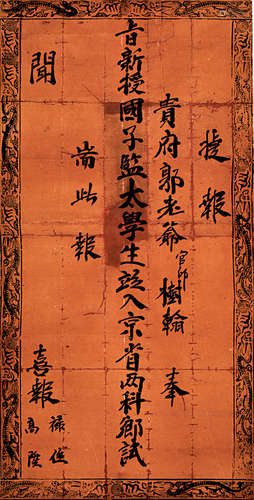 捷報
貴府郭老爺官印樹翰奉
旨新授國子監太學生並入京省两科鄉試
耑此報
聞
喜報
禄位
高陞